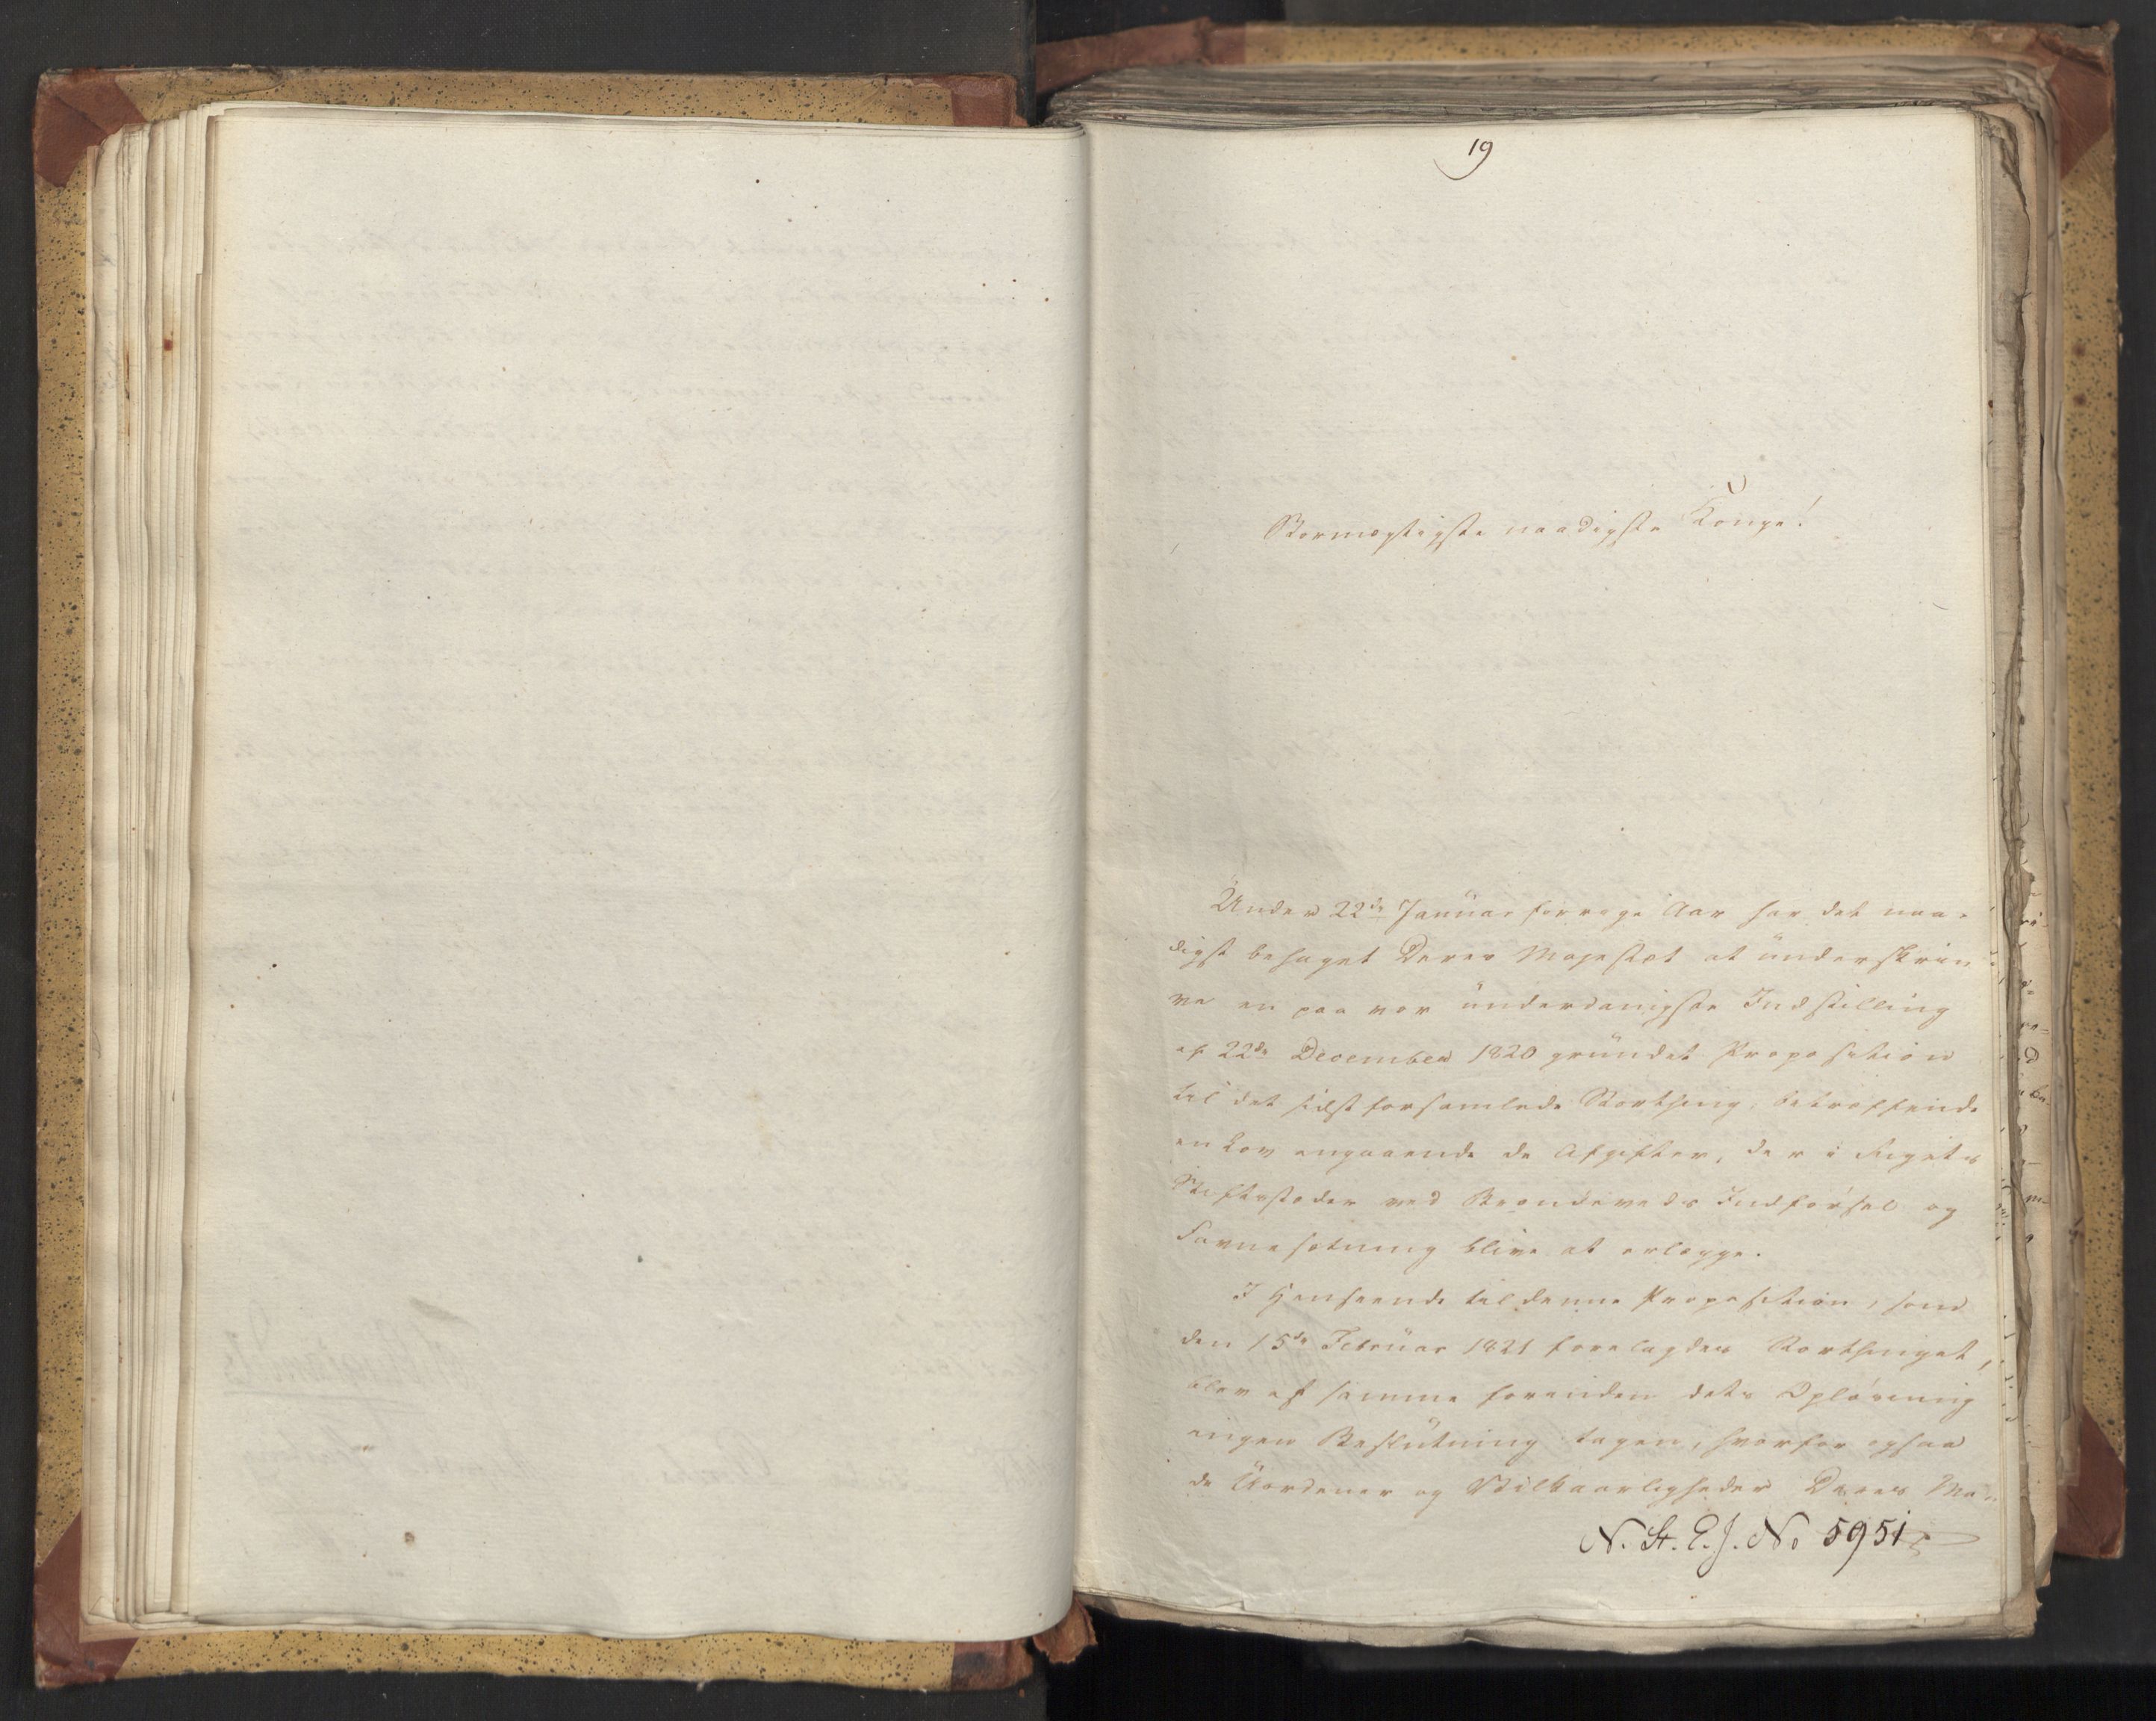 19
Stormægtigste naadigste Konge!
Under 22de Januar forrige Aar har det naa-
digst behaget Deres Majestæt at underskri-
ve en paa vor underdanigste Indstilling
af 22de December 1820 grundet Proposition
til det sidst forsamlede Storthing, betræffende
en Lov angaaende de Afgifter, der i Rigets
Stiftsstæder ved Brændeveds Indførsel og
Favnesætning blive at erlægge.
I Henseende til denne Proposition, som
den 15de Februar 1821 forelagdes Storthinget,
blev af samme forinden dets Opløsning
ingen Beslutning tagen, hvorfor ogsaa
de Uordener og Vilkaarligheder Deres Ma-
N. St. E. J. No 5951